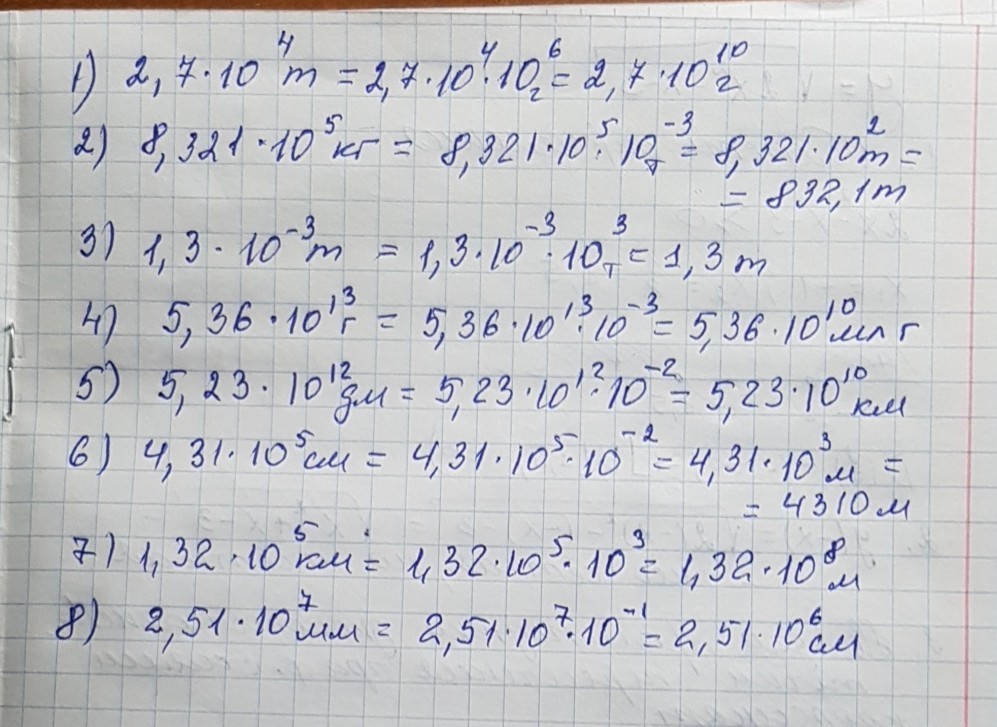 1) 2,7·10⁴т = 2,7·10⁴·10⁶г = 2,7·10¹⁰г
2) 8,321·10⁵кг = 8,321·10⁵·10⁻³т = 8,321·10²т =
= 832,1т
3) 1,3·10⁻³т = 1,3·10⁻³·10³т = 1,3т
4) 5,36·10¹³г = 5,36·10¹³·10⁻³ = 5,36·10¹⁰мл г
5) 5,23·10¹²дм = 5,23·10¹²·10⁻² = 5,23·10¹⁰км
6) 4,31·10⁵см = 4,31·10⁵·10⁻² = 4,31·10³м =
= 4310м
7) 1,32·10⁵км = 1,32·10⁵·10³ = 1,32·10⁸м
8) 2,51·10⁷мм = 2,51·10⁷·10⁻¹ = 2,51·10⁶см